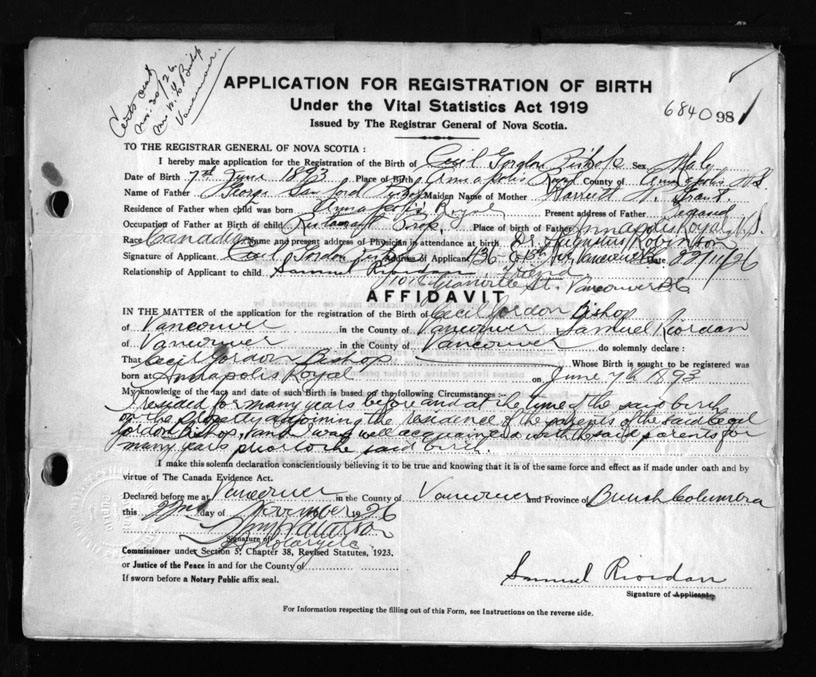 Certs sent
Nov. 30/26
Mr. W. H. Bishop
Vancouver.
APPLICATION FOR REGISTRATION OF BIRTH
Under the Vital Statistics Act 1919
Issued by The Registrar General of Nova Scotia.
684098
TO THE REGISTRAR GENERAL OF NOVA SCOTIA :
I hereby make application for the Registration of the Birth of Cecil Gordon Bishop Sex Male
Date of Birth 7th June 1893 Place of Birth Annapolis Royal County of Annapolis N.S
Name of Father George Sanford Bishop Maiden Name of Mother Harriett Grant
Residence of Father when child was born Annapolis Royal Present address of Father
Occupation of Father at Birth of child Restaurant Prop. Place of birth of Father Annapolis Royal N.S.
Race Canadian Name and present address of Physician in attendance at birth Dr. Augustus Robinson
Signature of Applicant Cecil Gordon Bishop Address of Applicant 136 Vancouver Date 22/11/26
Relationship of Applicant to child Samuel Riordan Friend
Granville St. Vancouver BC
AFFIDAVIT
IN THE MATTER of the application for the registration of the Birth of Cecil Gordon Bishop
of Vancouver in the County of Vancouver Samuel Riordan
of Vancouver in the County of Vancouver do solemnly declare :
That Cecil Gordon Bishop Whose Birth is sought to be registered was
born at Annapolis Royal on June 7th 1893
My knowledge of the fact and date of such Birth is based on the following Circumstances :-
I resided for many years before and at the time of the said birth
on the property adjoining the residence of the parents of the said Cecil
Gordon Bishop, and I was well acquainted with the said parents for
many years prior to the said birth.
I make this solemn declaration conscientiously believing it to be true and knowing that it is of the same force and effect as if made under oath and by
virtue of The Canada Evidence Act.
Declared before me at Vancouver in the County of Vancouver and Province of British Columbia
this 22nd day of November 1926
Signature of Notary etc
Commissioner under Section 5, Chapter 38, Revised Statutes, 1923,
or Justice of the Peace in and for the County of
If sworn before a Notary Public affix seal.
Samuel Riordan
Signature of Applicant
For Information respecting the filling out of this Form, see Instructions on the reverse side.